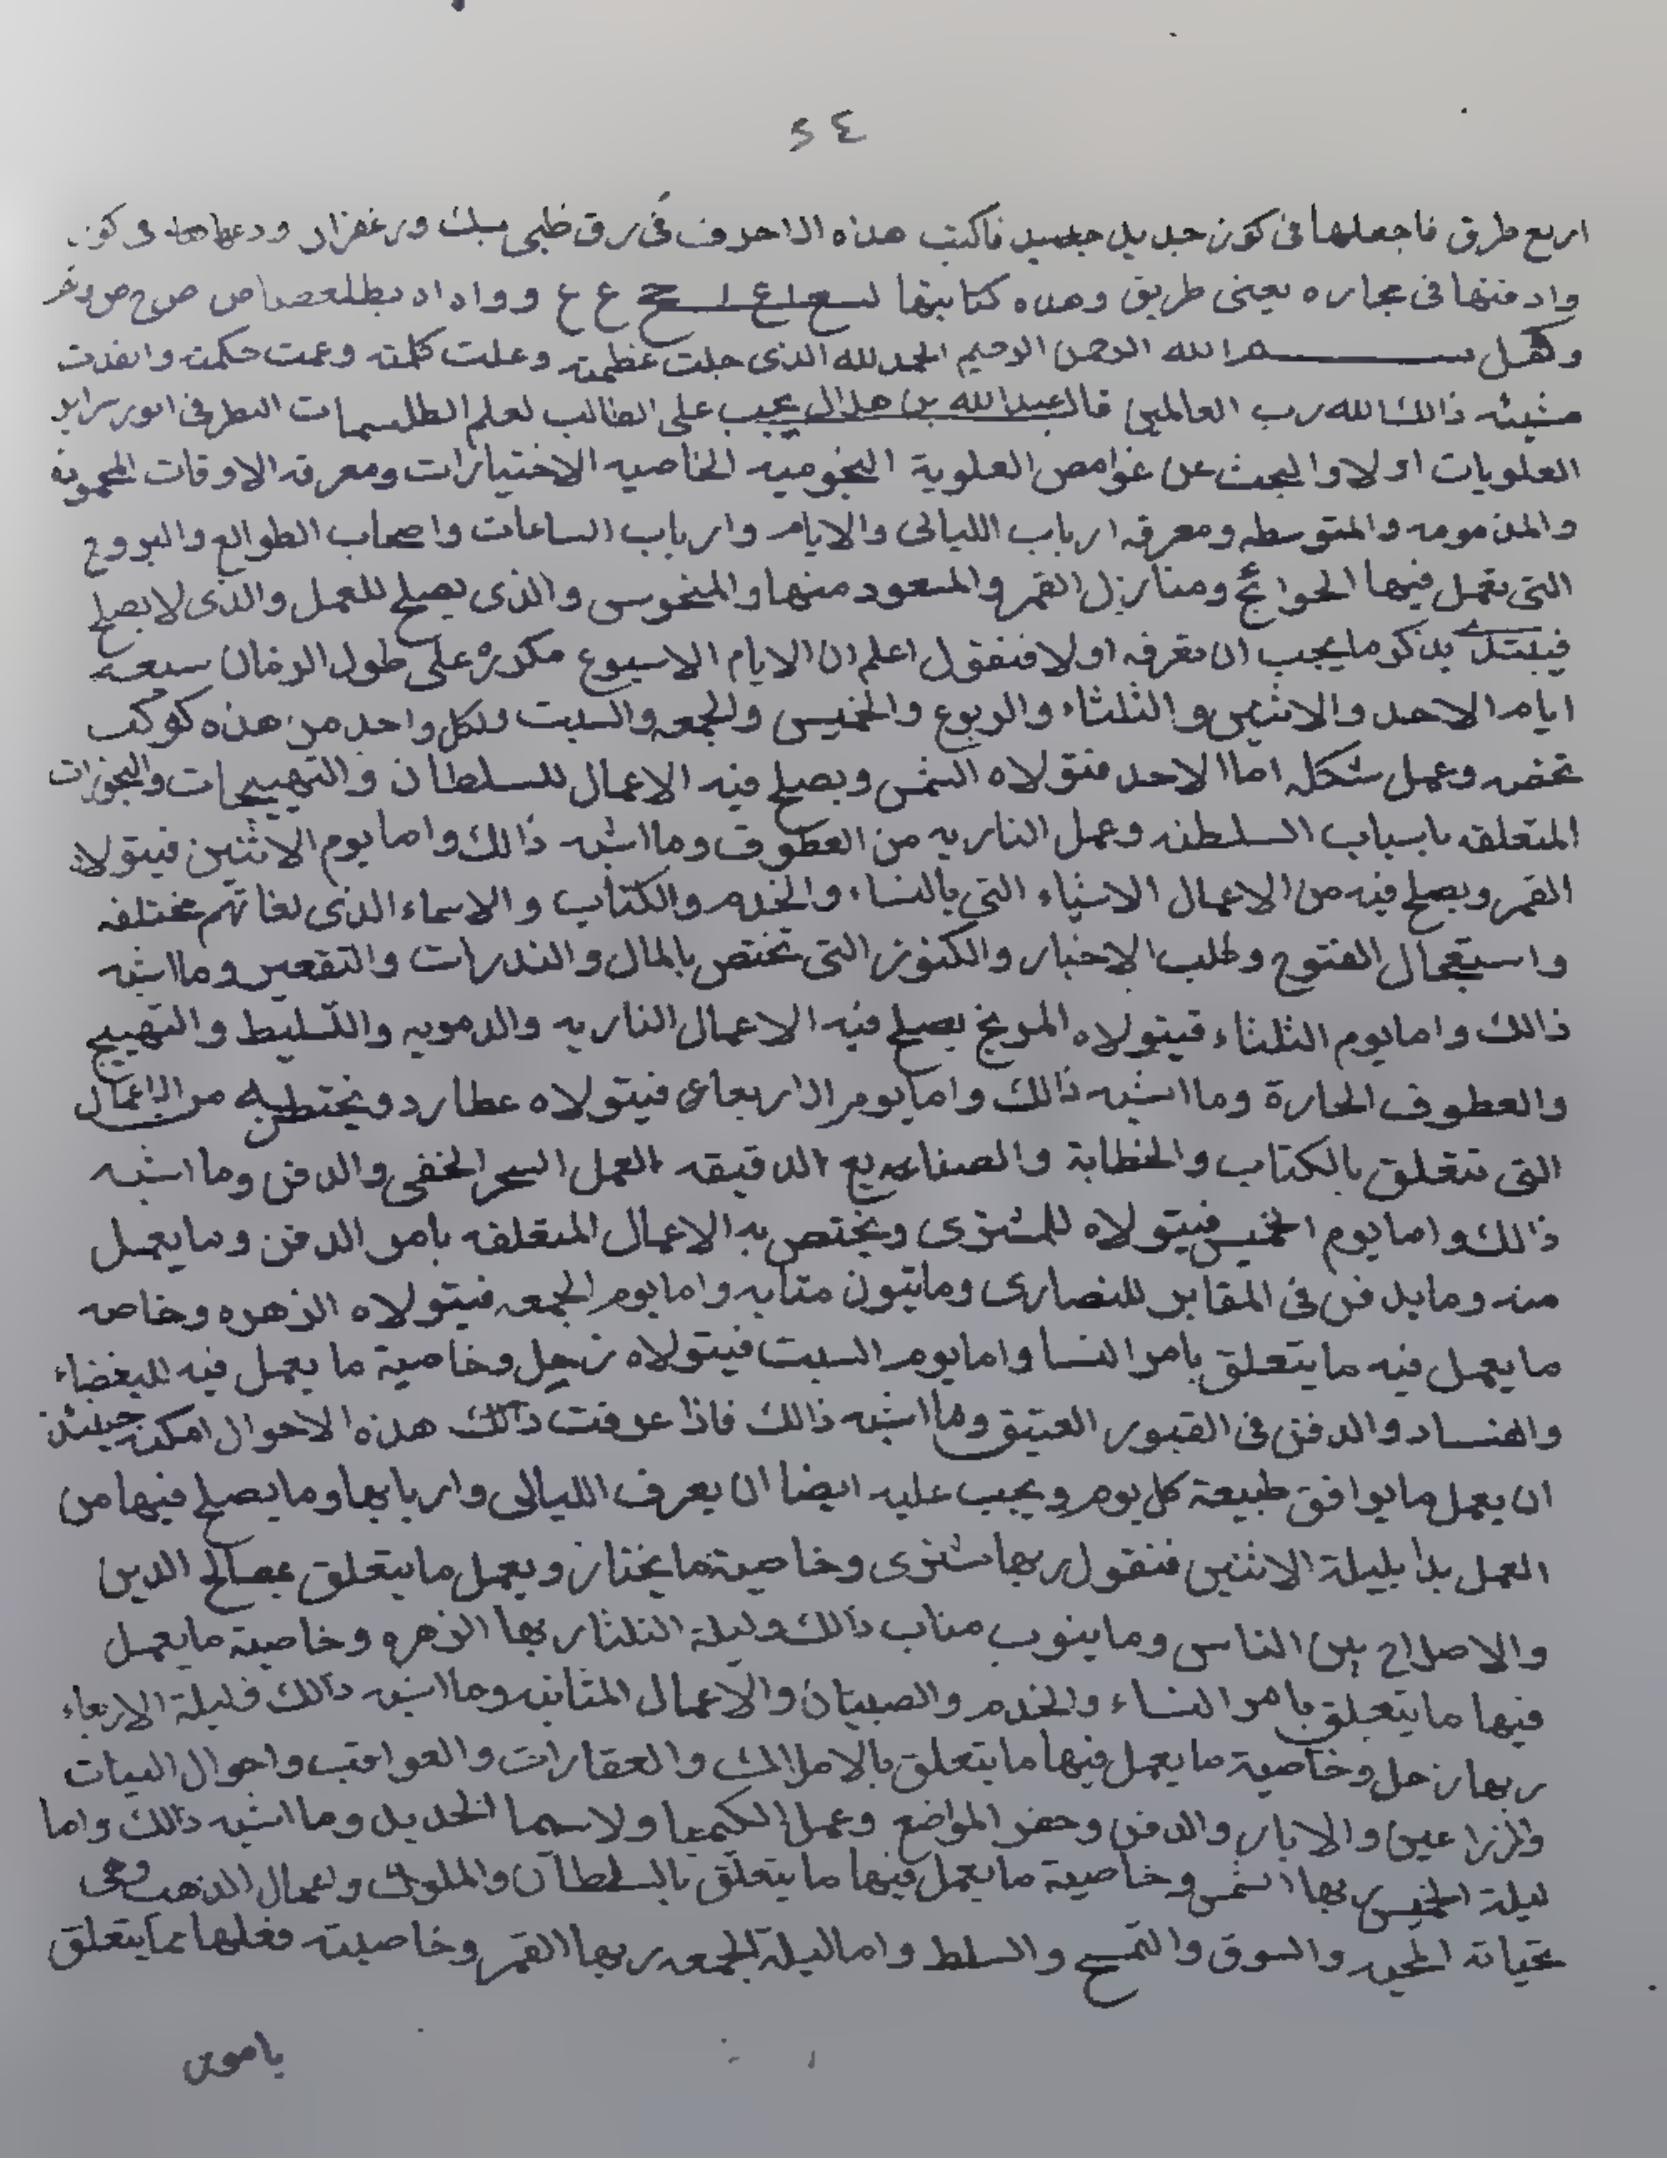 ٢٤
اربع طرق فاجعلها فى كوز جديد فاكتب هذاه الاحروف فى رق ظبى بمسك وزعفران ودعها فى كوز
وادفنها فى مجازه يعنى طريق وهذه كتابتها ع ع وواداد
بسم الله الرحمن الرحيم الحمد لله الذى جلت عظمته وعلت كلمته وعمت حكمته وانفذت
مشيئه ذالك الله رب العالمين قال عبد الله بن هلال يجب على الطالب لعلم الطلسمات النظر فى
العلويات اولا والبحث عن غوامص العلوية النجوميه الخاصيه الاختيارات ومعرفه الاوقات المحموده
والمذمومه والمتوسطه ومعرفه ارباب الليالى والايام وارباب الساعات واصحاب الطوالع والبروج
التى تعمل فيها الحوائج ومنازيل القمر والمسعود منها والمنحوس والذى يصلح للعمل والذى لا يصلح
فيبتدى بذكر ما يجب ان تعرفه اولا فنقول اعلم ان الايام الاسبوع مكرره على طول الزمان سبعه
ايام الاحد والاثنين والثلثاء والربوع والخميس والجمعه والسبت ولكل واحد من هذه كوكب
تخصه وعمل شكله اما الاحد فتولاه الشمس ويصلح فيه الاعمال للسلطان والتهييجات والبخورات
المتعلقه باسباب السلطنه وعمل الناريه من العطوف وما اشبه ذالك واما يوم الاثنين فيتولاه
القمر ويصلح فيه من الاعمال الاشياء التى بالنساء والخدم والكتاب والاسماء الذى لغاتهم مختلفه
واستعمال الفتوح وطلب الاخبار والكنوز التى تختص بالمال والندرات والتقعير وما اشبه
ذالك واما يوم الثلثاء فيتولاه المريخ يصلح فيه الاعمال الناريه والدمويه والتسليط والتهييج
والعطوف الحارة وما اشبه ذالك واما يوم الاربعاء فيتولاه عطارد ويختص به من الاعمال
التى تتعلق بالكتاب والخطابة والصنايع الدقيقه العمل السحر الخفى والدفن وما اشبه
ذالك واما يوم الخميس فيتولاه للمشترى ويختص به الاعمال المتعلقه بامر الدفن وما يعمل
منه وما يدفن فى المقابر للنصارى وما يتون متابه واما يوم الجمعه فيتولاه الزهره وخاصه
ما يعمل فيه ما يتعلق بامر النسا واما يوم السبت فيتولاه زحل وخاصية ما يعمل فيه للبغضاء
والفساد والدفن فى القبور العتيق وما اشبه ذالك فاذا عرفت ذالك هذه الاحوال امكنه حينئذ
ان يعمل ما يوافق طبيعة كل يوم ويجب عليه ايضا ان يعرف الليالى واربابها وما يصلح فيها من
العمل بدا بليلة الاثنين فنقول ربها مشترى وخاصية ما يختار ويعمل ما يتعلق بمصالح الدين
والاصلاح بين الناس وما ينوب مناب ذالك وليلة الثلثا ربها الزهره وخاصية ما يعمل
فيها ما يتعلق بامر النساء والخدم والصبيان والاعمال المثانيه وما اشبه ذالك فليلة الاربعاء
ربها زحل وخاصية ما يعمل فيها ما يتعلق بالاملاك والعقارات والعواقب واحوال النبات
والزراعين والابار والدفن وحفر المواضع وعمل الكيميا ولاسيما الحديد وما اشبه ذالك واما
ليلة الخميس ربها الشمس وخاصية ما يعمل فيها ما يتعلق بالسلطان والملوك واعمال الذهب
والسوق والسلط واما ليلة الجمعه ربها القمر وخاصيته فعلها مما يتعلق
بامور